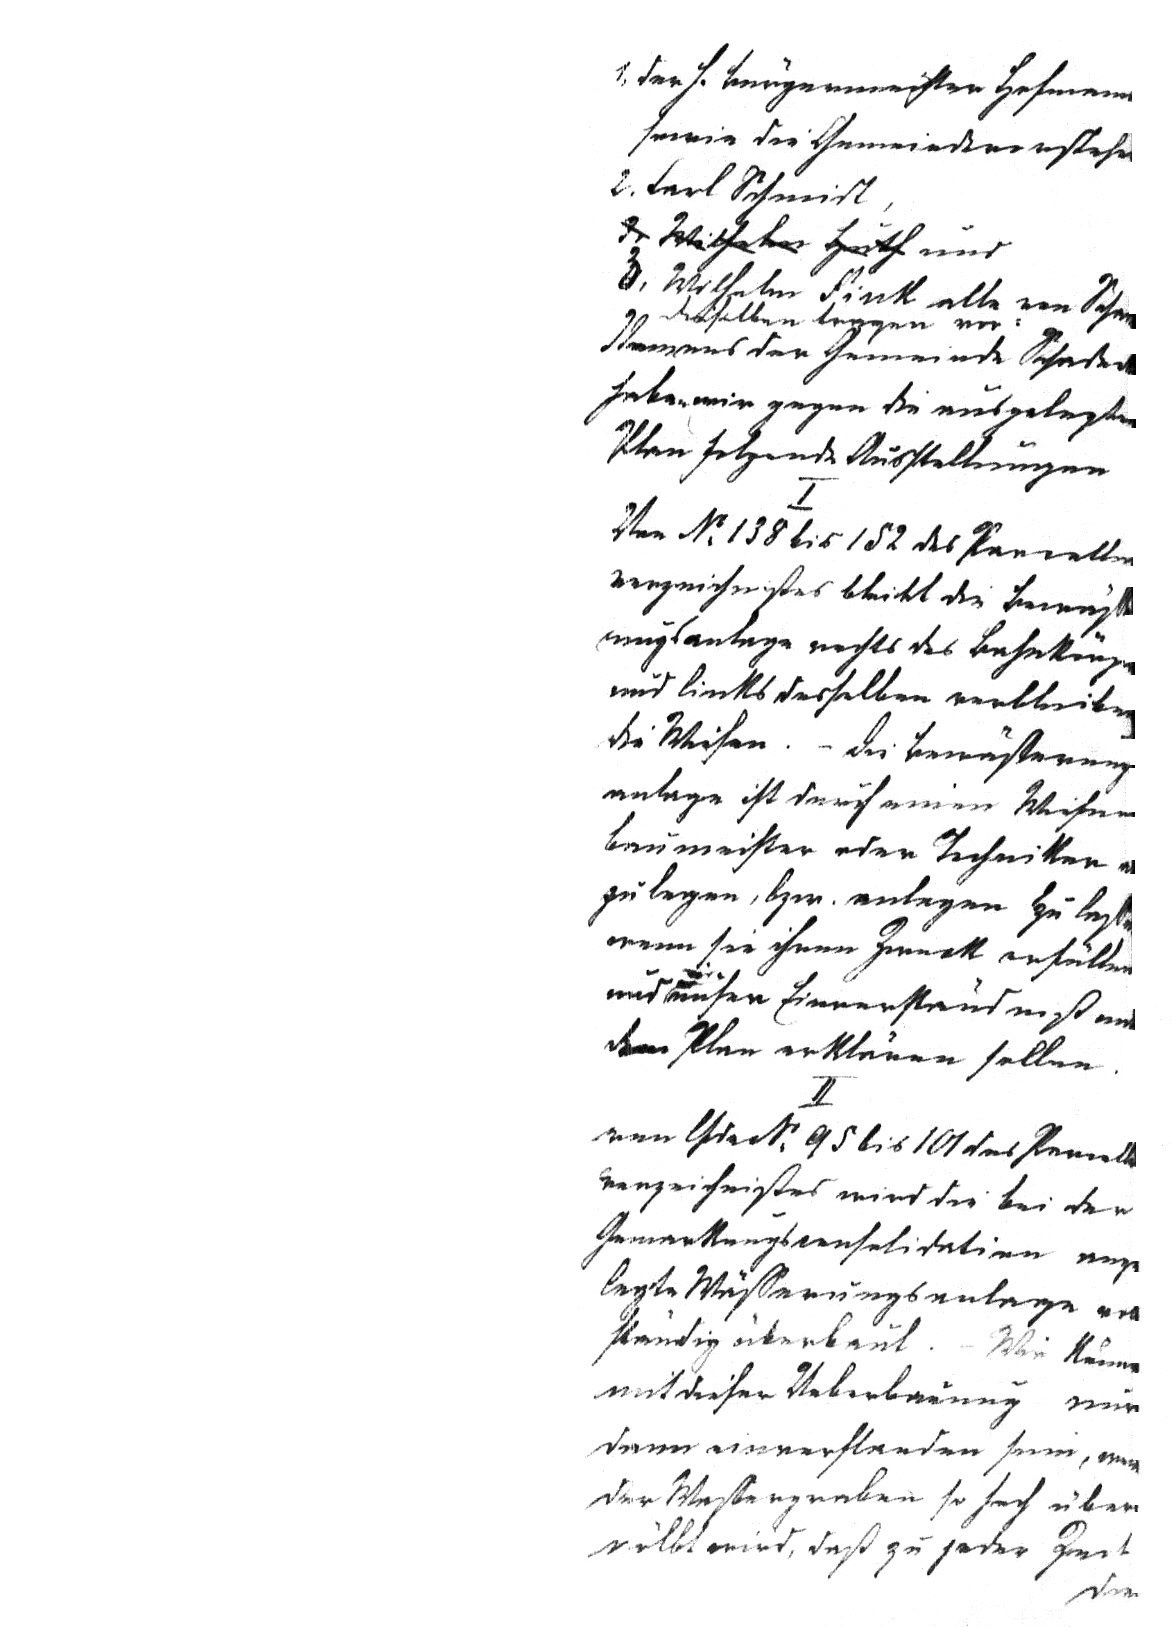 1. der H. Bürgermeister Hofmann
sowie die Gemeindevorsteher
2. Carl Schmidt,
3. Wilhelm Huth und
3. Wilhelm Fink alle von Scha
dieselben tragen vor:
Namens der Gemeinde Schadeck
haben wir gegen die ausgelegten
Plan folgende Ausstellungen
I
Von No. 138 bis 152 des Parcellen
verzeichnißes bleibt die Bewäße
rungsanlage rechts des Bahnkörpe
und links desselben verbleiben
die Wiesen. – Die Bewässerung
anlage ist durch einen Wiesen
baumeister oder Techniker
zulegen, bzw. anlegen zu laße
wenn sie ihren Zweck erfüllen
und wir unser Einverständniß mit
dem Plan erklären sollen.
II
von lfde No. 95 bis 101 des Parcelle
verzeichnißes wird die bei der
Gemarkungsconsolidation ange
legte Wässerungsanlage vol
ständig überbaut. – Wir könne
mit dieser Ueberbauung nur
dann einverstanden sein, wenn
der Wassergraben so hoch über
wölbt wird, daß zu jeder Zeit
die